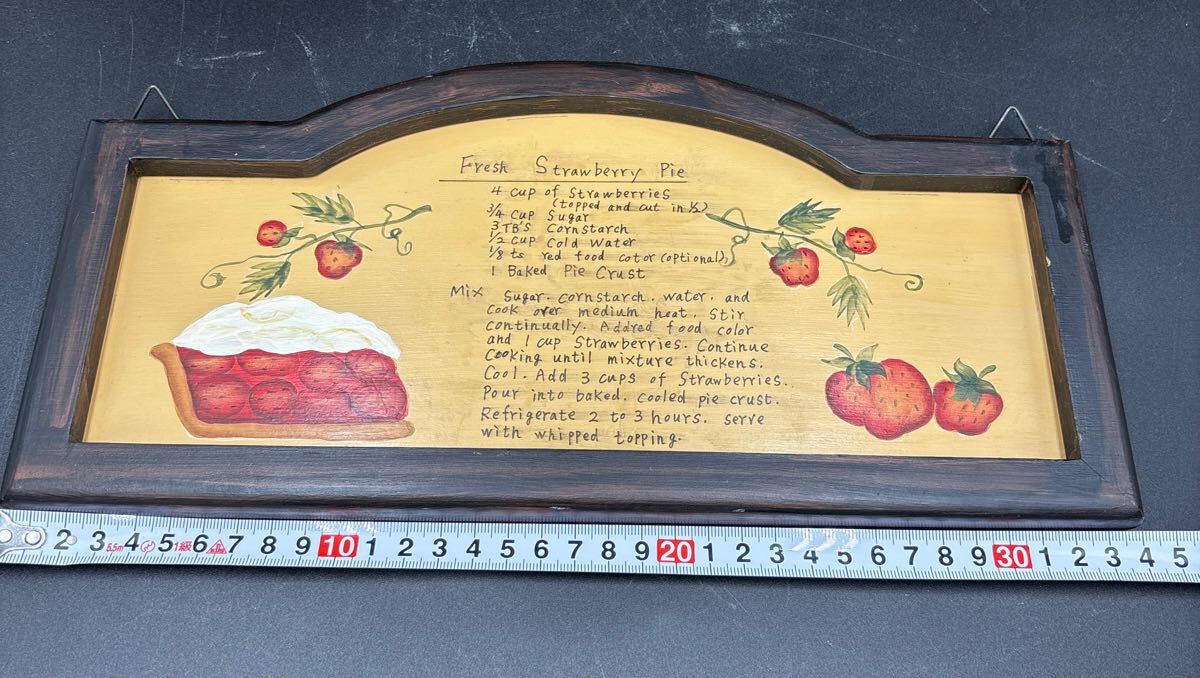 Fresh Strawberry Pie
4 cup of Strawberries
(topped and cut in ½)
3/4 cup Sugar
3 TB'S Cornstarch
1/2 cup Cold Water
1/8 ts red food color (optional)
1 Baked Pie Crust
Mix Sugar. cornstarch. water. and
cook over medium heat. Stir
continually. Addred food color
and 1 cup Strawberries. Continue
Cooking until mixture thickens.
Cool. Add 3 cups of Strawberries.
Pour into baked. cooled pie crust.
Refrigerate 2 to 3 hours. serve
with whipped topping.
2 3 5.5m 4 5 1級 6 7 8 9 10 1 2 3 4 5 6 7 8 9 20 1 2 3 4 5 6 7 8 9 30 1 2 3 4 5